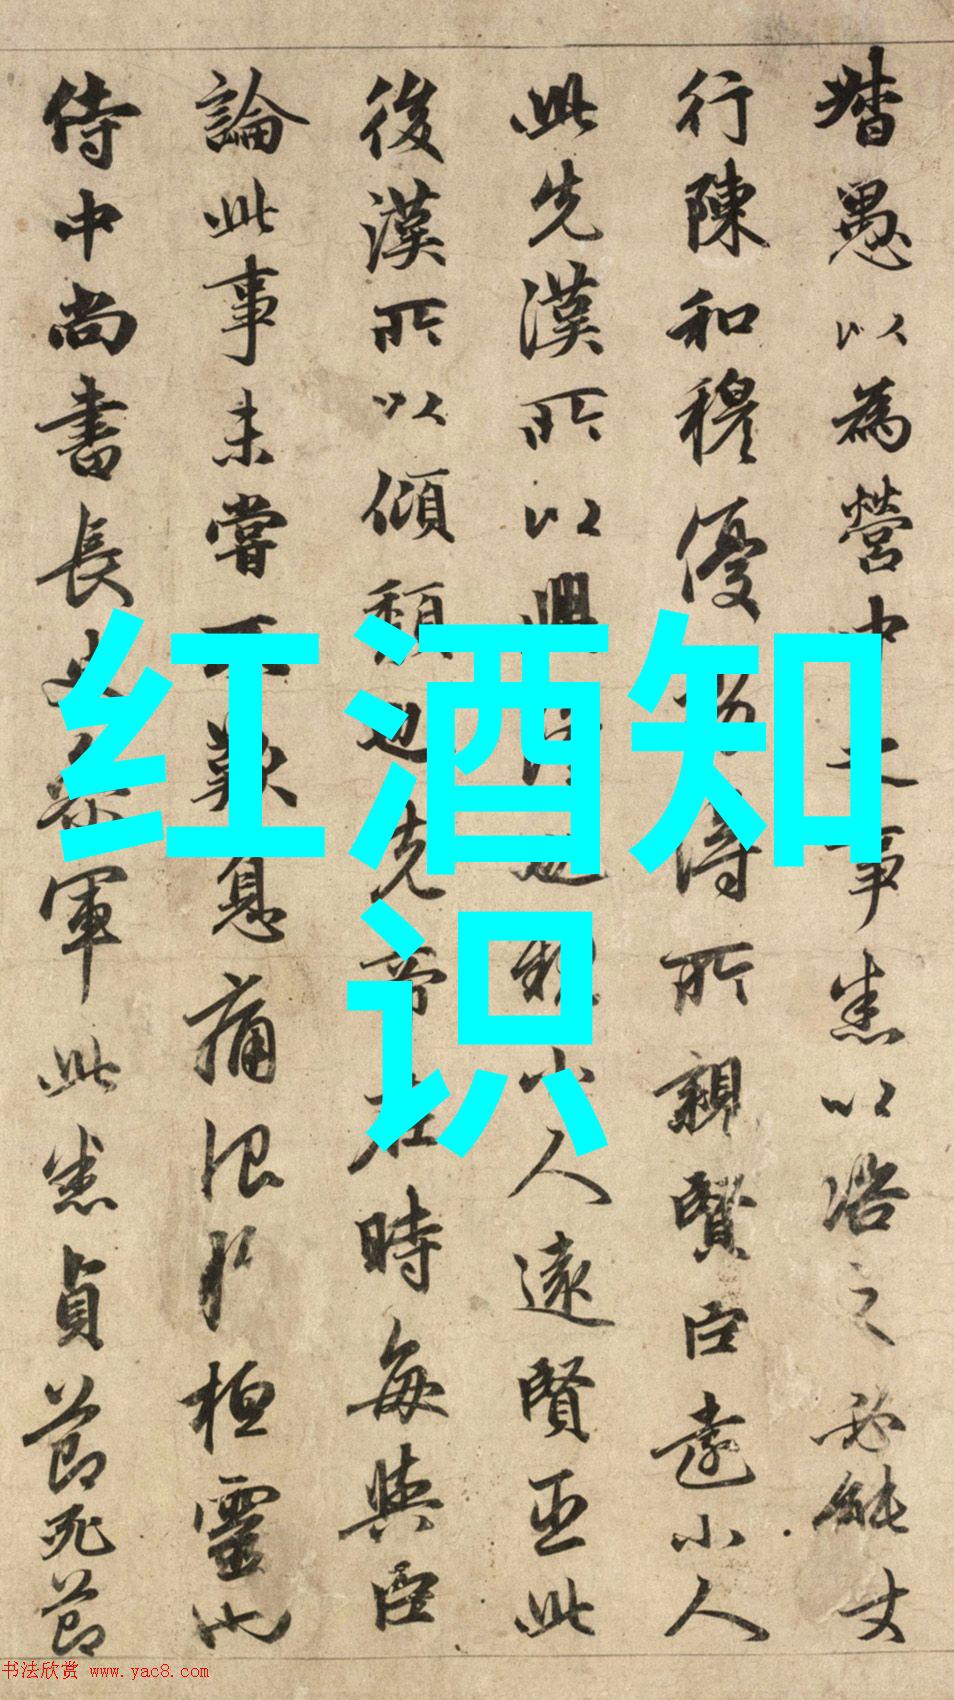 督愚以為營中之事悉以咨之必能
行陳和穆優劣得所親賢臣遠小人
此先漢所以興隆也親小人遠賢臣此
後漢所以傾頹也先帝在時每與臣
論此事未嘗不歎息痛恨於桓靈也
侍中尚書長史參軍此悉貞節死節
红酒知
识
书法欣赏 www.yac8.com